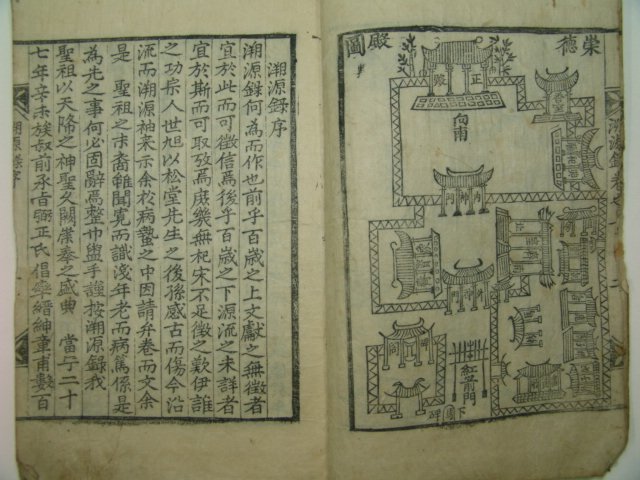 崇德
殿圖
正殿
向南
內神門
紅箭門
下馬碑
溯源錄序
溯源錄何為而作也前乎百歲之上文獻之無徵者
宜於此而可徵信焉後乎百歲之下源流之未詳者
宜於斯而可取攷焉庶幾無杞宋不足徵之歎伊誰
之功宗人世旭以松堂先生之後孫感古而傷今沿
流而溯源袖來示余於病蟄之中因請弁卷而文余
是 聖祖之末裔雖聞寬而識淺年老而病篤係是
為先之事何必固辭焉整巾盥手謹按溯源錄我
聖祖以天降之神聖久闕崇奉之盛典 當宁二十
七年辛未族叔前永壽弼正氏倡率縉紳章甫數百
溯源錄序